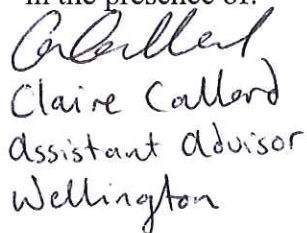 in the presence of:
Claire Callard
Assistant advisor
Wellington